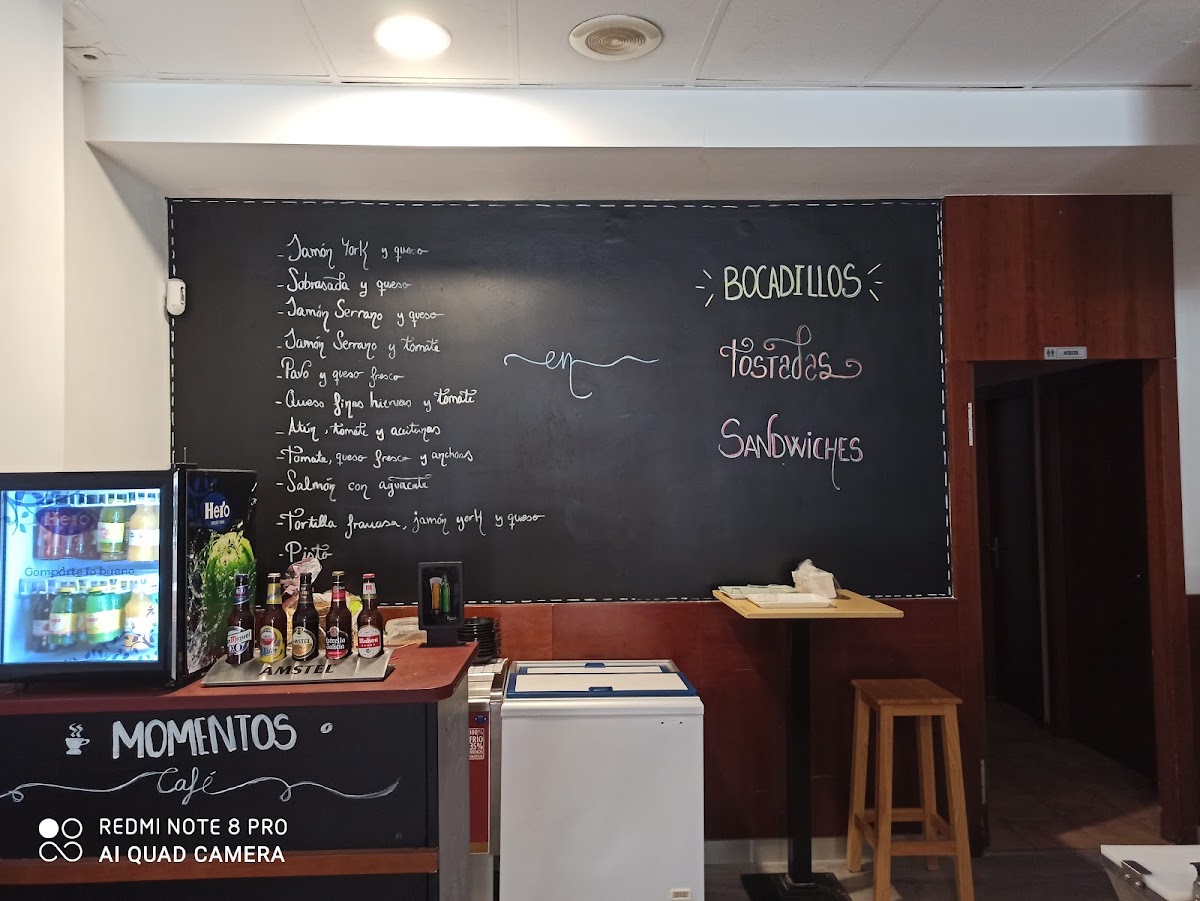 - Jamón York y queso
- Sobrasada y queso
- Jamón Serrano y queso
- Jamón Serrano y tomate
- Pavo y queso fresco
- Queso finas hiervas y tomate
- Atún, tomate y aceitunas
- Tomate, queso fresco y anchoas
- Salmón con aguacate
- Tortilla francesa, jamón york y queso
- Pisto
en
BOCADILLOS
Tostadas
SANDWICHES
ASEOS
Hero
Hero
Comparte lo bueno
San Miguel
AMSTEL
Estrella
Galicia
Mahou
AMSTEL
MOMENTOS
Café
100%
FRIO
35%
REDMI NOTE 8 PRO
AI QUAD CAMERA